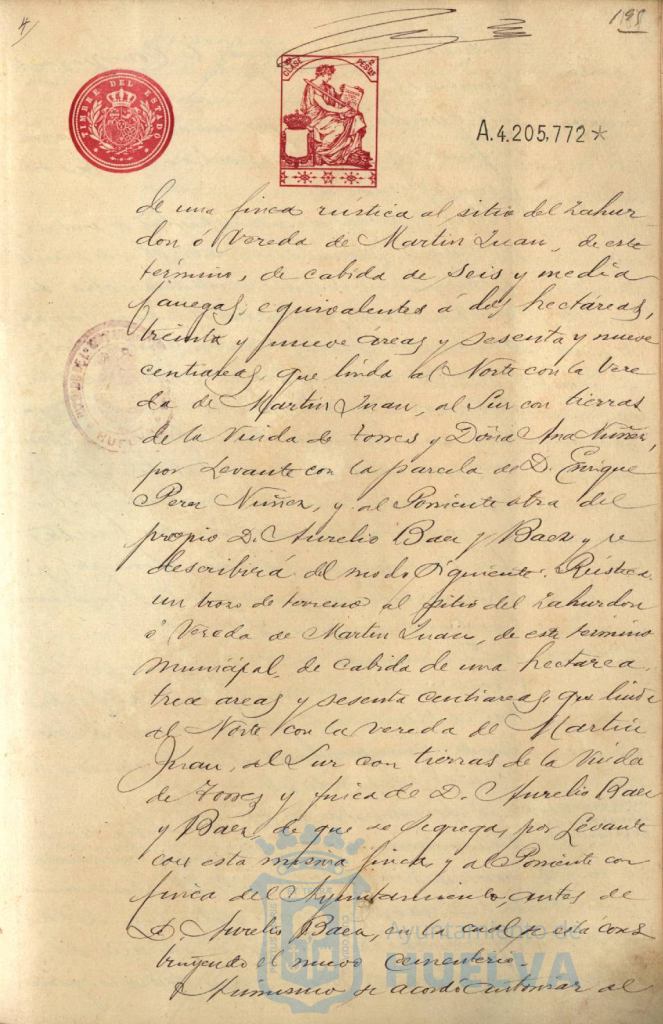 4
198
TIMBRE DEL ESTADO
CLASE PESETAS
A.4.205,772*
de una finca rústica al sitio del Zahur
don ó Vereda de Martin Juan, de este
término, de cabida de seis y media
fanegas, equivalentes á dos hectáreas,
treinta y nueve áreas y sesenta y nueve
centiareas, que linda al Norte con la Vere
da de Martin Juan, al Sur con tierras
de la Viuda de Torres y Doña Ana Nuñez,
por Levante con la parcela de D. Enrique
Perez Nuñez, y al Poniente otra del
propio D. Aurelio Baez y Baez y se
describirá del modo siguiente. Rústica
un trozo de terreno al sitio del Zahurdon
ó Vereda de Martin Juan, de este término
municipal, de cabida de una hectarea
trece areas y sesenta centiareas, que linda
al Norte con la vereda de Martin
Juan, al Sur con tierras de la Viuda
de Torres y finca de D. Aurelio Baez
y Baez, de que se segrega, por Levante
con esta misma finca, y al Poniente con
finca del Ayuntamiento, antes de
D. Aurelio Baez, en la cual se está cons
truyendo el nuevo cementerio.-
Asimismo se acordó autorizar al
HUELVA
Ayuntamiento de
HUELVA